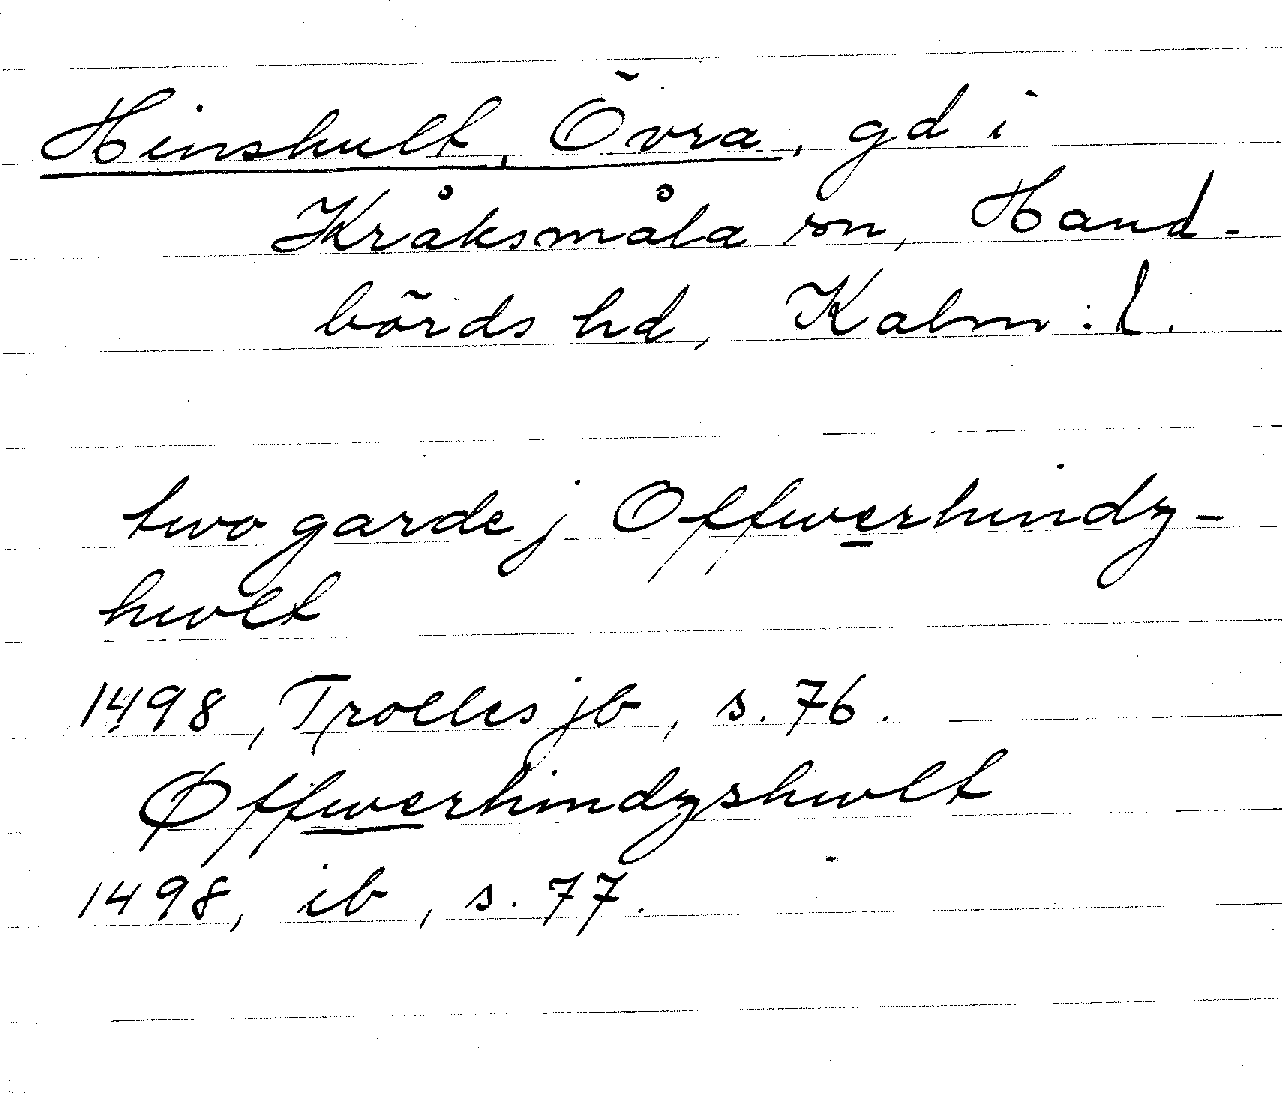 Hinshult, Övra, gd i
Kråksmåla sn, Hand-
börds hd, Kalm. l.
two garde j Offwerhindz-
hwlt
1498, Trolles jb, s. 76.
Øffwerhindzshwlt
1498, ib, s. 77.